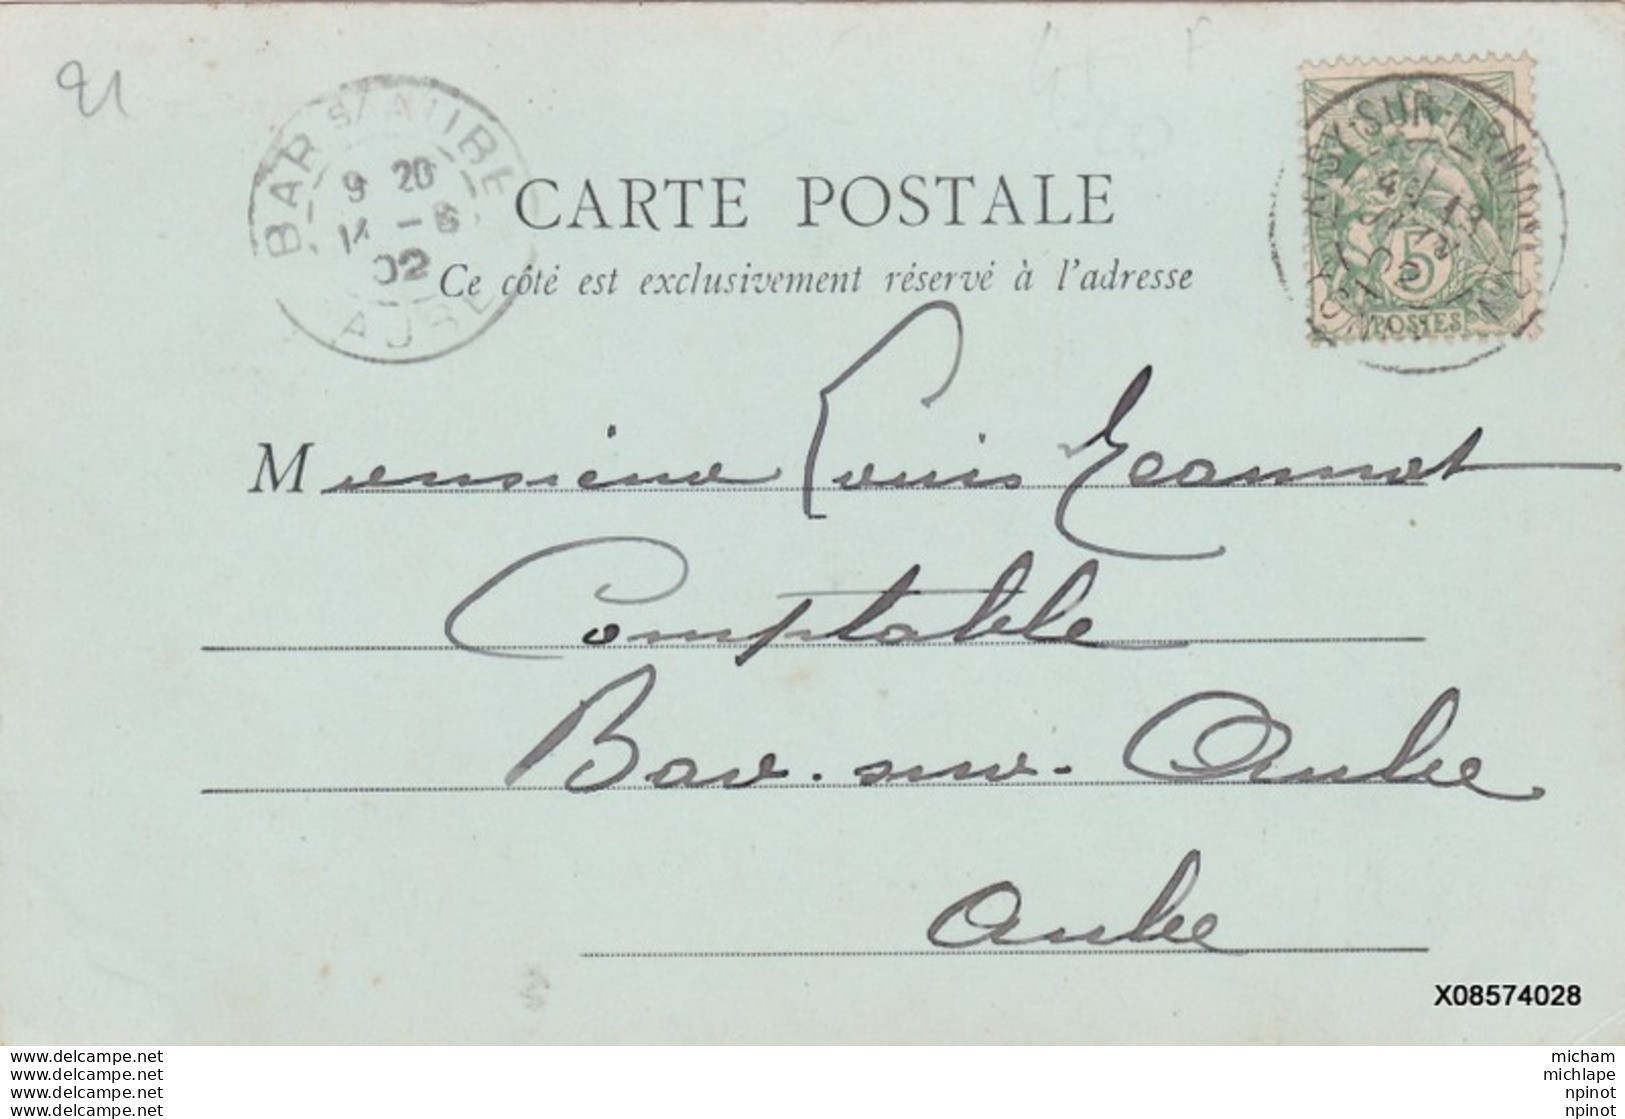 91
BAR S/ AUBE
9 20
14 - 6
02
AUBE
SUR-ARMANÇON
5
POSTES
CARTE POSTALE
Ce côté est exclusivement réservé à l'adresse
Monsieur Louis Jeannot
Comptable
Bar-sur-Aube
Aube
X08574028
www.delcampe.net
www.delcampe.net
www.delcampe.net
www.delcampe.net
micham
michlape
npinot
npinot